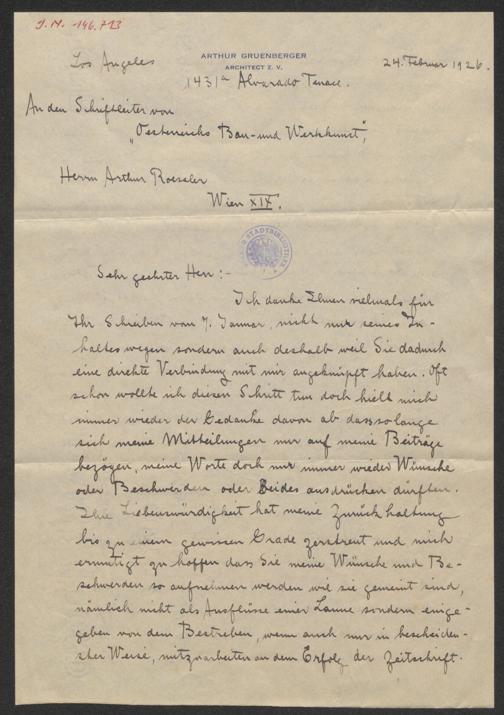 J.N. 146.713
ARTHUR GRUENBERGER
ARCHITECT Z. V.
Los Angeles
24. Februar 1926.
1431a Alvarado Terrace.
An den Schriftleiter von
"Oesterreichs Bau- und Werkkunst",
Herrn Arthur Roessler
Wien XIX.
STADTBIBLIOTHEK
Sehr geehrter Herr :-
Ich danke Ihnen vielmals für
Ihr Schreiben vom 7. Januar, nicht nur seines In-
haltes wegen sondern auch deshalb weil Sie dadurch
eine direkte Verbindung mit mir angeknüpft haben. Oft
schon wollte ich diesen Schritt tun doch hielt mich
immer wieder der Gedanke davon ab dass solange
sich meine Mitteilungen nur auf meine Beiträge
bezögen, meine Worte doch nur immer wieder Wünsche
oder Beschwerden oder Beides ausdrücken dürften.
Ihre Liebenswürdigkeit hat meine Zurückhaltung
bis zu einem gewissen Grade zerstreut und mich
ermutigt zu hoffen dass Sie meine Wünsche und Be-
schwerden so aufnehmen werden wie sie gemeint sind,
nämlich nicht als Ausflüsse einer Laune sondern einge-
geben von dem Bestreben, wenn auch nur in bescheiden-
ster Weise, mitzuarbeiten an dem Erfolg der Zeitschrift.